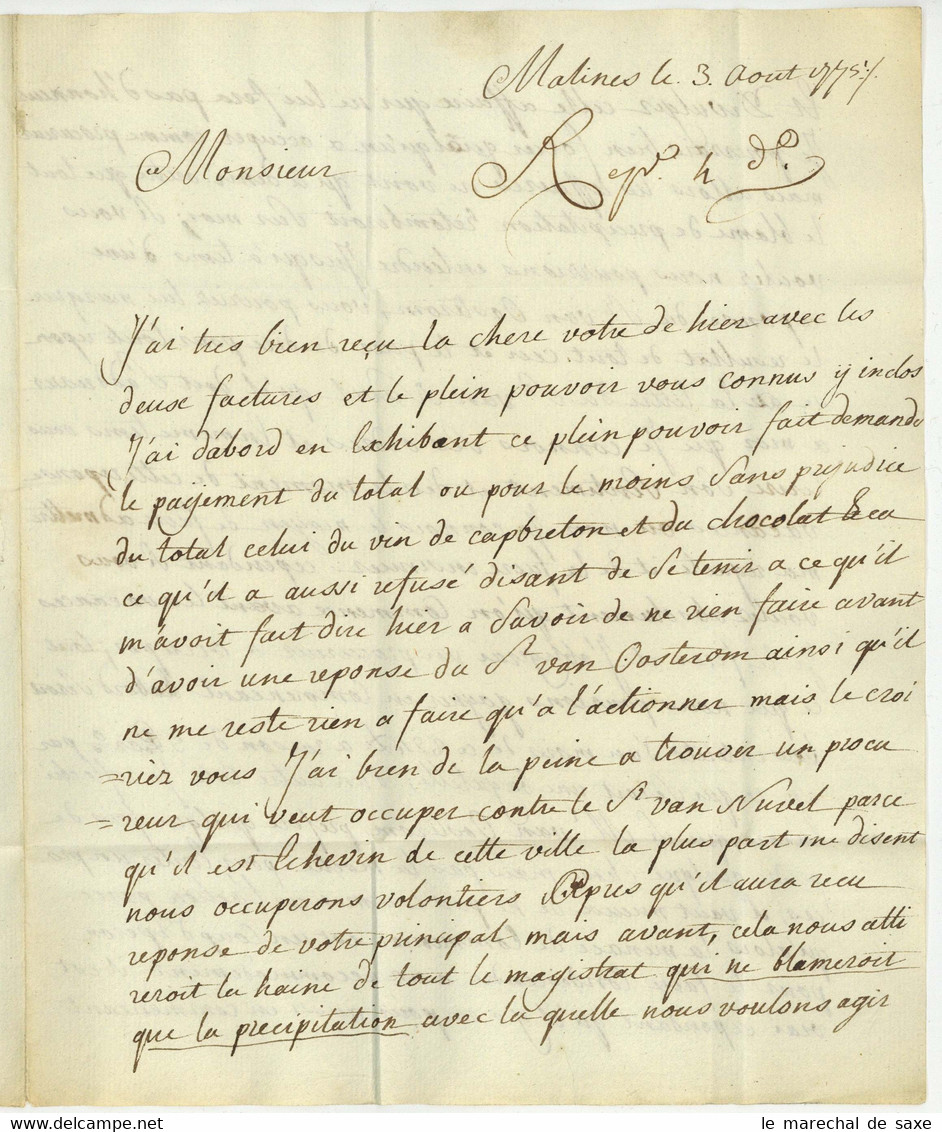 Malines le 3 Aout 1775 ./.
Monsieur
Repd. 4 do.
J'ai tres bien reçu la chere votre de hier avec les
deux factures et le plein pouvoir vous connus y inclos
J'ai d'abord en Exhibant ce plein pouvoir fait demander
le paijement du total ou pour le moins Sans prejudice
du total celui du vin de capbreton et du chocolat
ce qu'il a aussi refusé disant de Se tenir a ce qu'il
m'avoit fait dire hier a Savoir de ne rien faire avant
d'avoir une reponse du Sr van Oosterom ainsi qu'il
ne me reste rien a faire qu'a l'actionner mais le croi
=riez vous J'ai bien de la peine a trouver un procu
=reur qui veut occuper contre le Sr van Nuvel parce
qu'il est Echevin de cette ville la plus part me disent
nous occuperons volontiers apres qu'il aura recu
reponse de votre principal mais avant, cela nous atti
reroit la haine de tout le magistrat qui ne blameroit
que la precipitation avec la quelle nous voulons agir
le marechal de saxe